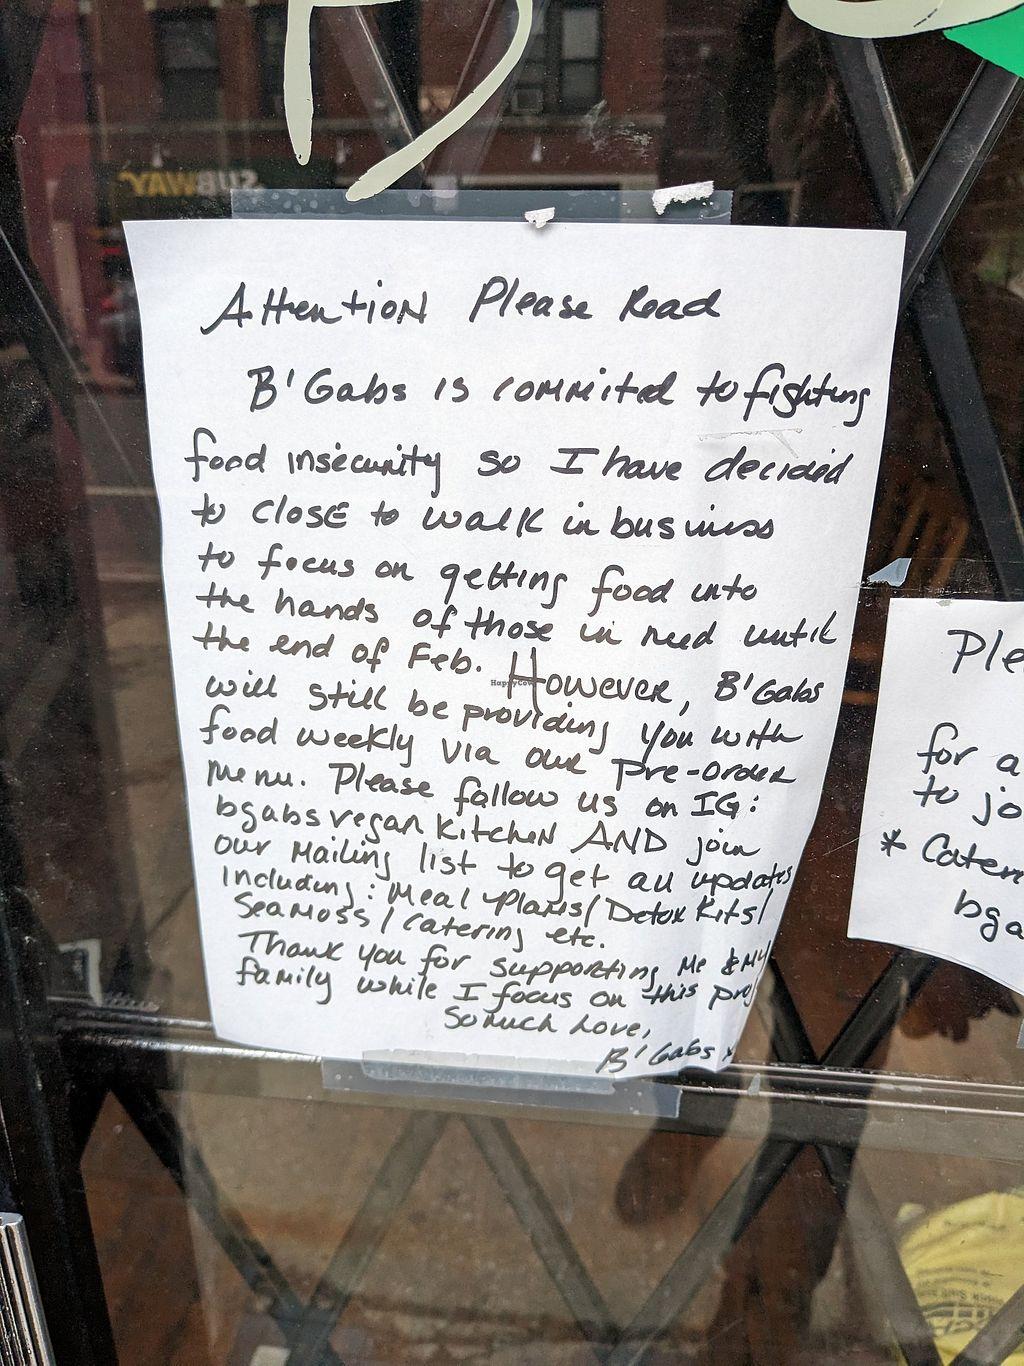 SUBWAY
Attention Please Read
B'Gabs is commited to fighting
food insecurity so I have decided
to close to walk in business
to focus on getting food into
the hands of those in need until
the end of Feb. However, B'Gabs
will still be providing you with
food weekly via our pre-order
menu. Please follow us on IG:
bgabsvegankitchen AND join
our mailing list to get all updates
including: Meal Plans/Detox Kits/
Seamoss/Catering etc.
Thank you for supporting me & my
family while I focus on this
So much love,
B'Gabs
HappyCow
for a
to jo
* Cater
bga